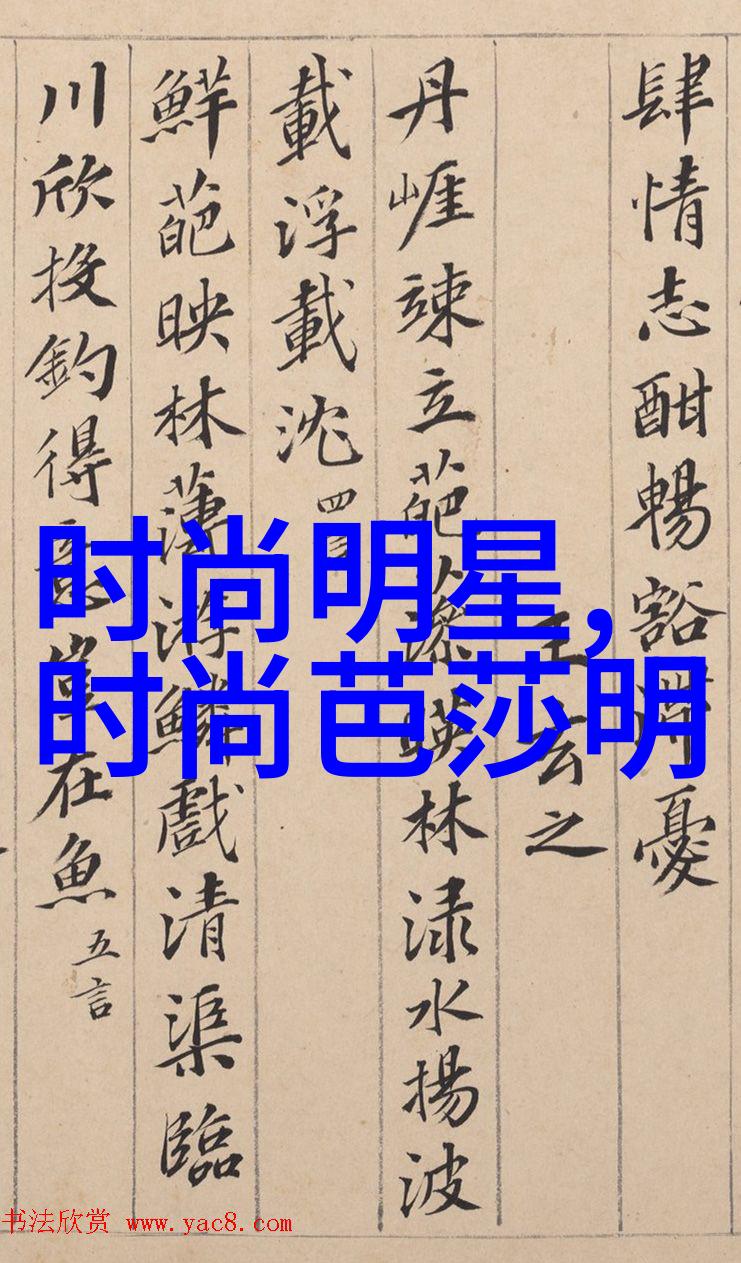 肆情志酣暢豁滯憂
王玄之
丹崕竦立葩藻暎林渌水揚波
載浮載沈 四言
鮮葩映林薄游鱗戲清渠臨
川欣投釣得意豈在魚 五言
时尚明星,
时尚芭莎明
书法欣赏 www.yac8.com